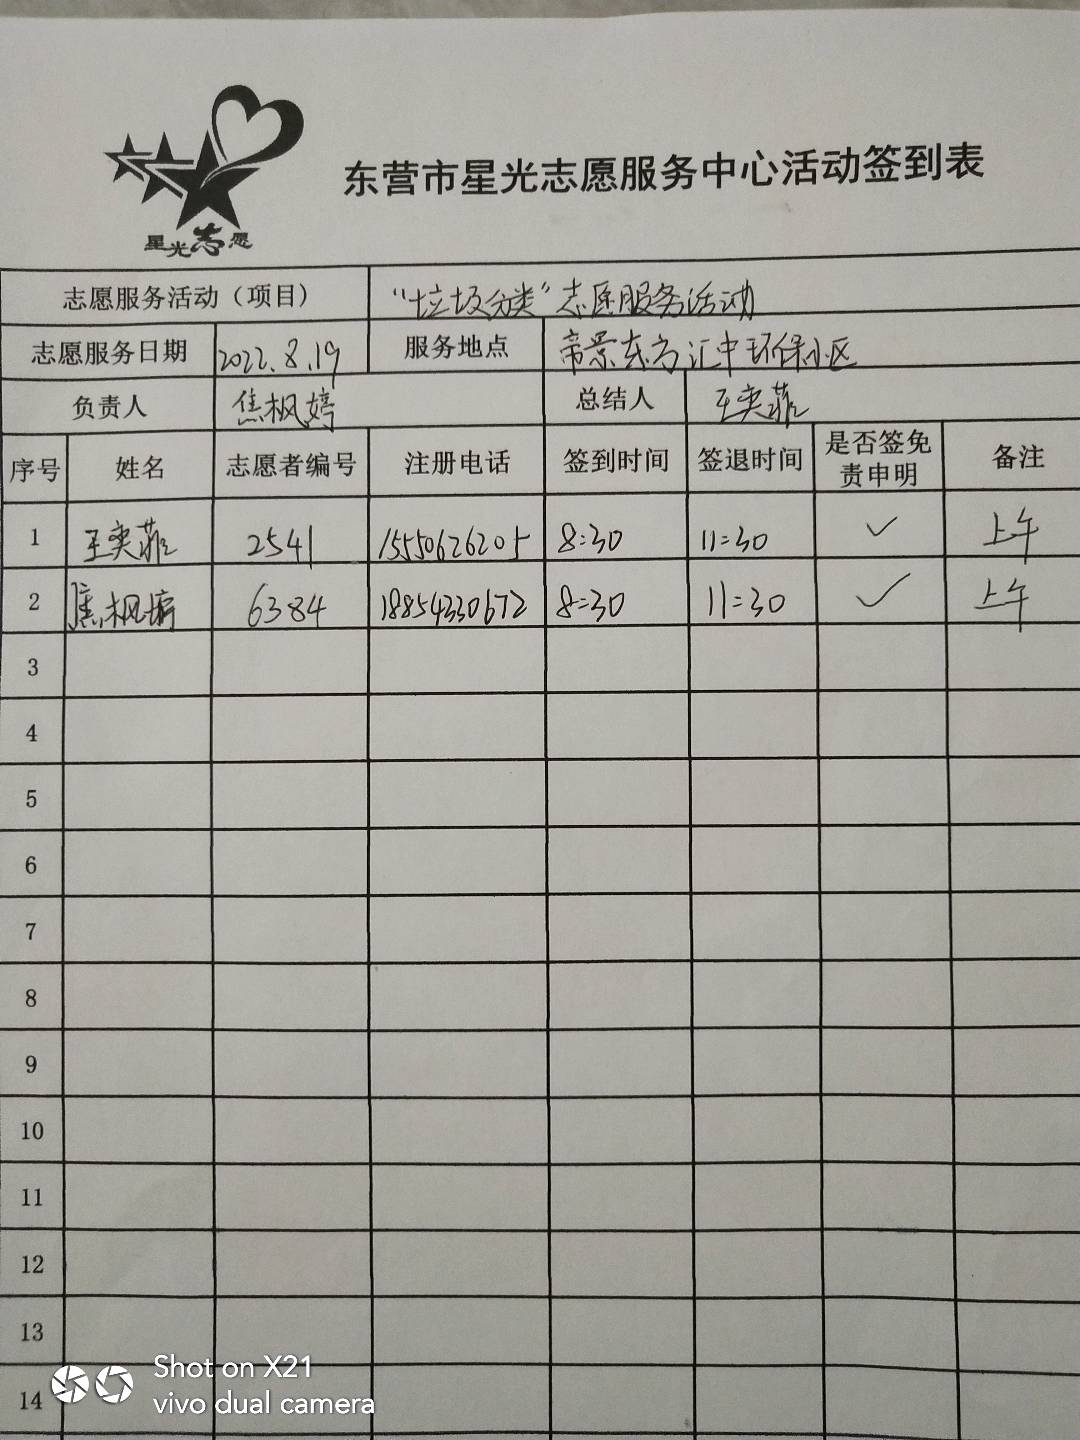 星光志愿
东营市星光志愿服务中心活动签到表
志愿服务活动（项目） “垃圾分类”志愿服务活动
志愿服务日期 2022.8.19 服务地点 帝景东方汇中环保小区
负责人 焦枫婷 总结人 王奕菲
序号 姓名 志愿者编号 注册电话 签到时间 签退时间 是否签免责申明 备注
1 王奕菲 2541 15550626205 8:30 11:30 ✓ 上午
2 焦枫婷 6384 18854330672 8:30 11:30 ✓ 上午
3
4
5
6
7
8
9
10
11
12
13
14
Shot on X21
vivo dual camera